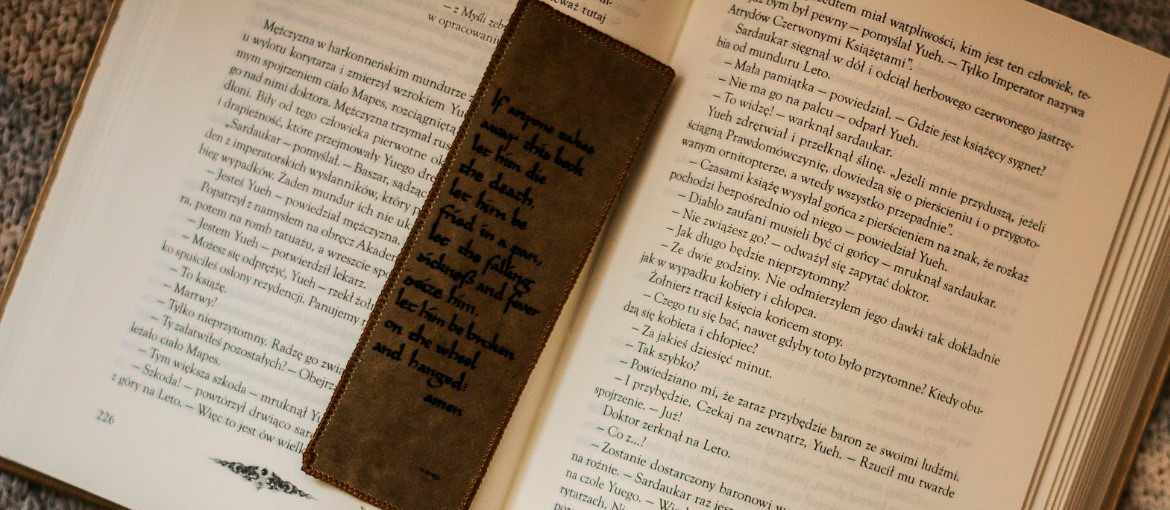 – z Myśli
w opracowaniu
Mężczyzna w harkonneńskim mundurze
u wylotu korytarza i zmierzył wzrokiem
mym spojrzeniem ciało Mapes, rozciągnięta
go nad nimi doktora. Mężczyzna trzymał
dłoni. Biły od tego człowieka pierwotne
i drapieżność, które przejmowały Yuego
„Sardaukar – pomyślał. – Baszar, sądząc
den z imperatorskich wysłanników, który
bieg wypadków. Żaden mundur ich nie
– Jesteś Yueh – powiedział mężczyzna.
Popatrzył z namysłem na obręcz
ra, potem na romb tatuażu, a wreszcie
– Jestem Yueh – potwierdził lekarz.
– Możesz się odprężyć, Yueh – rzekł
ko opuściłeś osłony rezydencji. Panujemy
– To książę.
– Martwy?
– Tylko nieprzytomny. Radzę go
– Ty załatwiłeś pozostałych? –
leżało ciało Mapes.
– Tym większa szkoda – mruknął
– Szkoda! – powtórzył drwiąco
z góry na Leto. – Więc to jest ów
226
tutaj
If anyone takes
away this book
let him die
the death,
let him be
fried in a pan,
let the falling
sickneß and fever
seize him
let him be broken
on the wheel
and hanged!
amen
miał wątpliwości, kim jest ten człowiek, te-
już bym był pewny – pomyślał Yueh. – Tylko Imperator nazywa
Atrydów Czerwonymi Książętami”.
Sardaukar sięgnął w dół i odciął herbowego czerwonego jastrzę-
bia od munduru Leto.
– Mała pamiątka – powiedział. – Gdzie jest książęcy sygnet?
– Nie ma go na palcu – odparł Yueh.
– To widzę! – warknął sardaukar.
Yueh zdrętwiał i przełknął ślinę. „Jeżeli mnie przyduszą, jeżeli
ściągną Prawdomówczynię, dowiedzą się o pierścieniu i o przygoto-
wanym ornitopterze, a wtedy wszystko przepadnie”.
– Czasami książę wysyłał gońca z pierścieniem na znak, że rozkaz
pochodzi bezpośrednio od niego – powiedział Yueh.
– Diablo zaufani musieli być ci gońcy – mruknął sardaukar.
– Nie zwiążesz go? – odważył się zapytać doktor.
– Jak długo będzie nieprzytomny?
– Ze dwie godziny. Nie odmierzyłem jego dawki tak dokładnie
jak w wypadku kobiety i chłopca.
Żołnierz trącił księcia końcem stopy.
– Czego tu się bać, nawet gdyby toto było przytomne? Kiedy obu-
dzą się kobieta i chłopiec?
– Za jakieś dziesięć minut.
– Tak szybko?
– Powiedziano mi, że zaraz przybędzie baron ze swoimi ludźmi.
– I przybędzie. Czekaj na zewnątrz, Yueh. – Rzucił mu twarde
spojrzenie. – Już!
Doktor zerknął na Leto.
– Co z...?
– Zostanie dostarczony baronowi
na rożnie. – Sardaukar raz jeszcze
na czole Yuego. –
rytarzach.